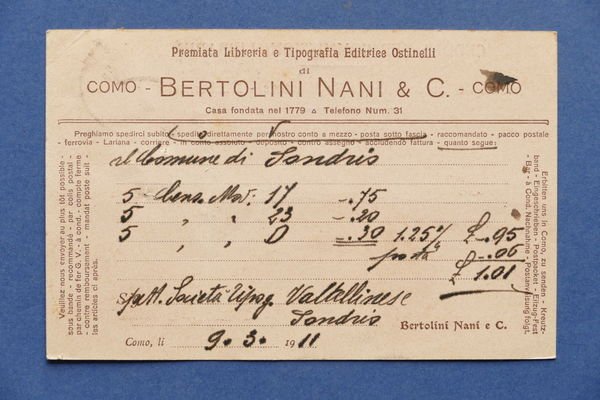 Premiata Libreria e Tipografia Editrice Ostinelli
di
COMO - BERTOLINI NANI & C. - COMO
Casa fondata nel 1779 Telefono Num. 31
Preghiamo spedirci subito - spedire direttamente per nostro conto a mezzo - posta sotto fascia - raccomandato - pacco postale
- ferrovia - Lariana - corriere - in conto assoluto - deposito - contro assegno - accludendo fattura - quanto segue:
al Comune di Sondrio
5 Cens. Mod. 17 -.75
5 " " 23 -.20
5 " " D -.30 1.25 % £ -.95
posta -.06
£ 1.01
Spett. Società Tipog. Valtellinese
Sondrio
Bertolini Nani e C.
Como, li 9.3. 1911
Veuillez nous envoyer au plus tôt possible -
sous bande - recommandé - par colis postal -
par chemin de fer G. V. - à cond. - compte ferme
- contre remboursement - mandat poste suit -
les articles ci après.
Erbitten uns in Como, zu senden - Kreutz-
band - Eingeschrieben - Postpacket - Eilzug-Fest
- Bar - à Cond. Nachnahme - Postanweisung folgt.